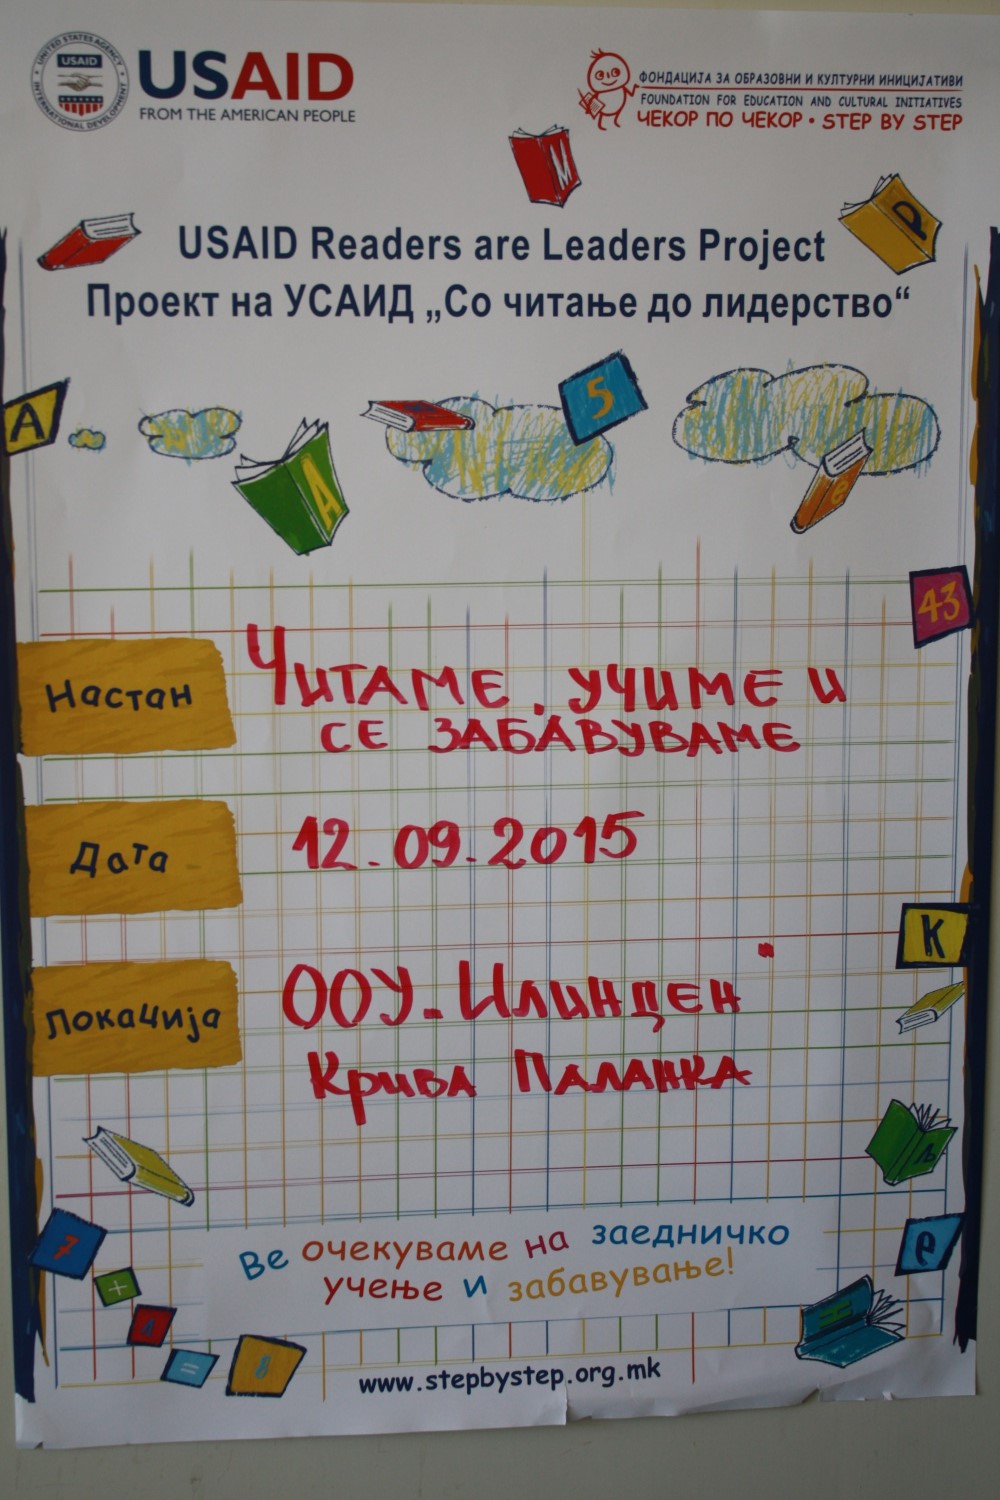 UNITED STATES AGENCY
USAID
INTERNATIONAL DEVELOPMENT
USAID
FROM THE AMERICAN PEOPLE
ФОНДАЦИЈА ЗА ОБРАЗОВНИ И КУЛТУРНИ ИНИЦИЈАТИВИ
FOUNDATION FOR EDUCATION AND CULTURAL INITIATIVES
ЧЕКОР ПО ЧЕКОР • STEP BY STEP
М
Р
USAID Readers are Leaders Project
Проект на УСАИД „Со читање до лидерство“
А
5
А
ё
43
Настан
Читаме, учиме и
се забавуваме
Дата
12.09.2015
К
Локација
ООУ„Илинден“
Крива Паланка
љ
7
+
=
8
е
Н
Ве очекуваме на заедничко
учење и забавување!
www.stepbystep.org.mk